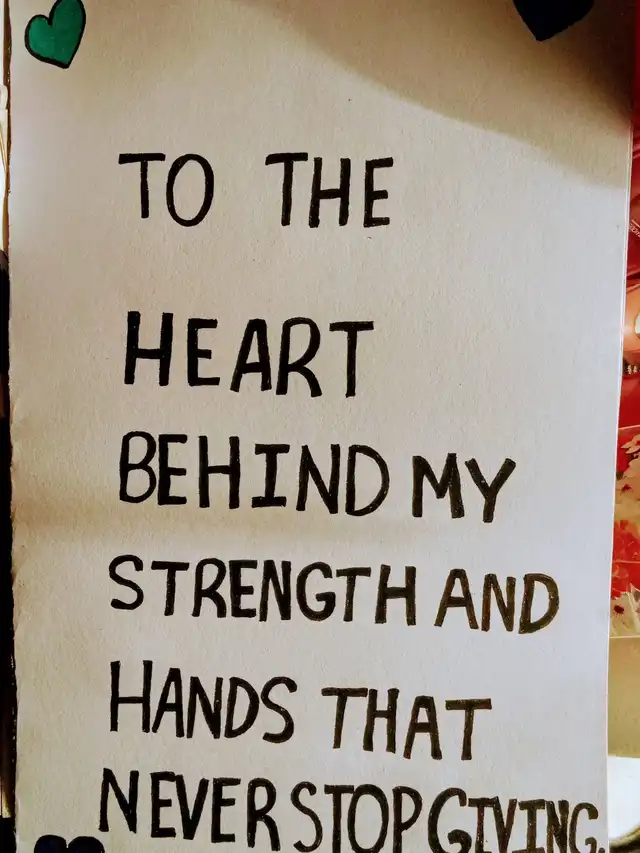 TO THE
HEART
BEHIND MY
STRENGTH AND
HANDS THAT
NEVER STOP GIVING.